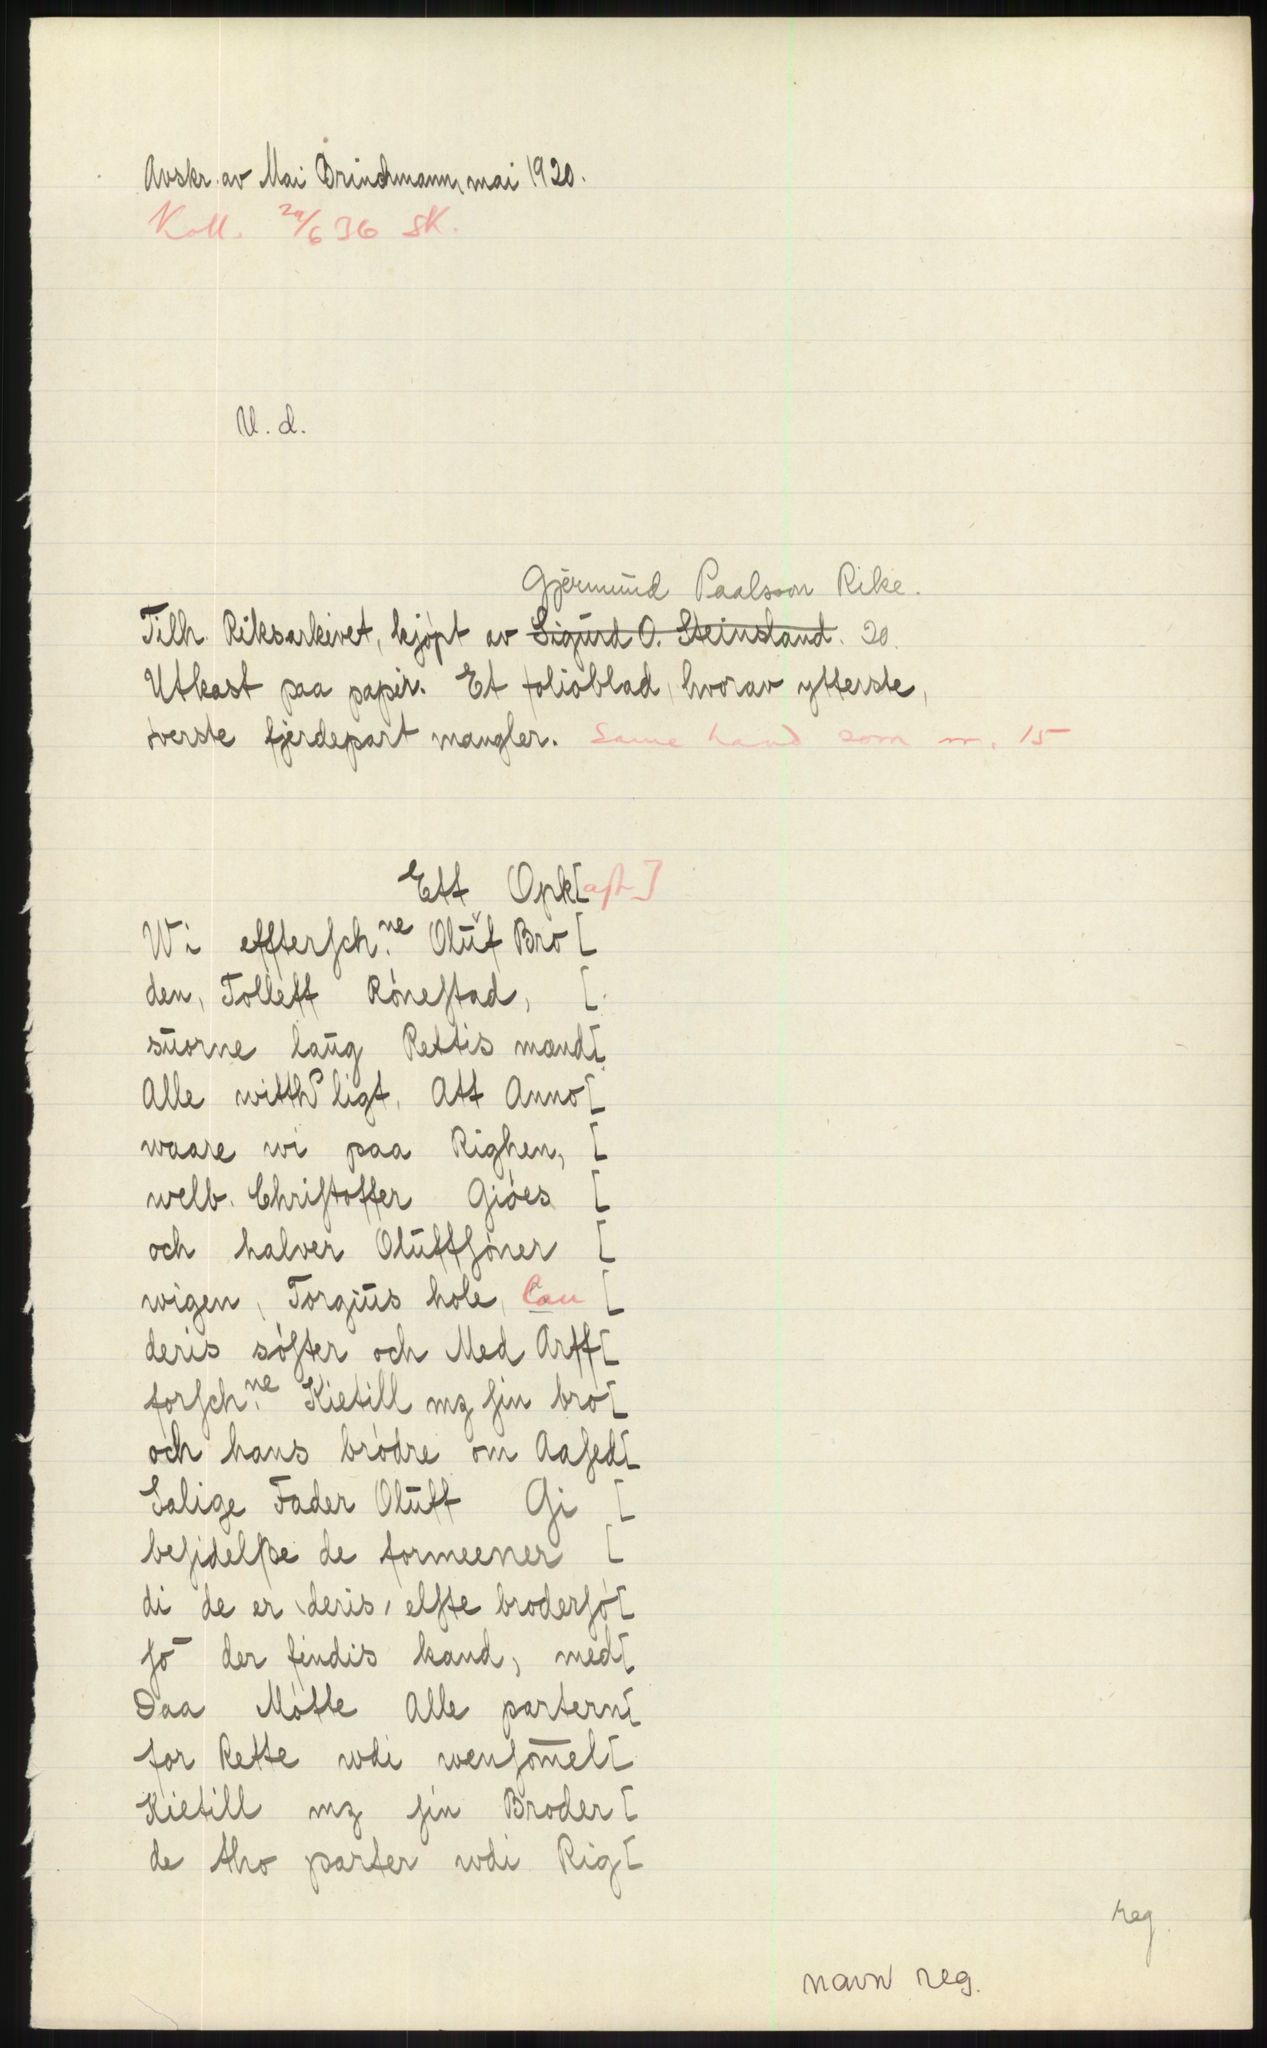 Avskr. av Mai Brinchmann, mai 1920.
Koll. 29/6 36 SK.
U. d.
Gjermund Paalsson Rike.
Tilh. Riksarkivet, kjøpt av Sigurd O. Steinsland. 20.
Utkast paa papir. Et folioblad, hvorav ytterste,
øverste fjerdepart mangler. Same hand som nr. 15
Ett Opk[ast]
Wi effterſch.ne Oluf Bro [
den, Tolleff Röneſtad, [
suorne laug Rettis mænd[
Alle witthligt, Att Anno [
waare wi paa Righen, [
welb. Chriſtoffer Giöes [
och halver Oluffſöner [
wigen, Torgius hole, Cau [
deris söſter och Med Arff[
forſch.ne Kietill mz ſin bro[
och hans brödre om Aaſed[
Salige Fader Oluff Gi [
beſidelße de formeener [
di de er deris elſte broderſö[
ſö der findis kand, med[
Daa Mötte Alle partern[
for Rette wdi wenſömel[
Kietill mz ſin Broder [
de tho parter wdi Rig[
reg
navn reg.